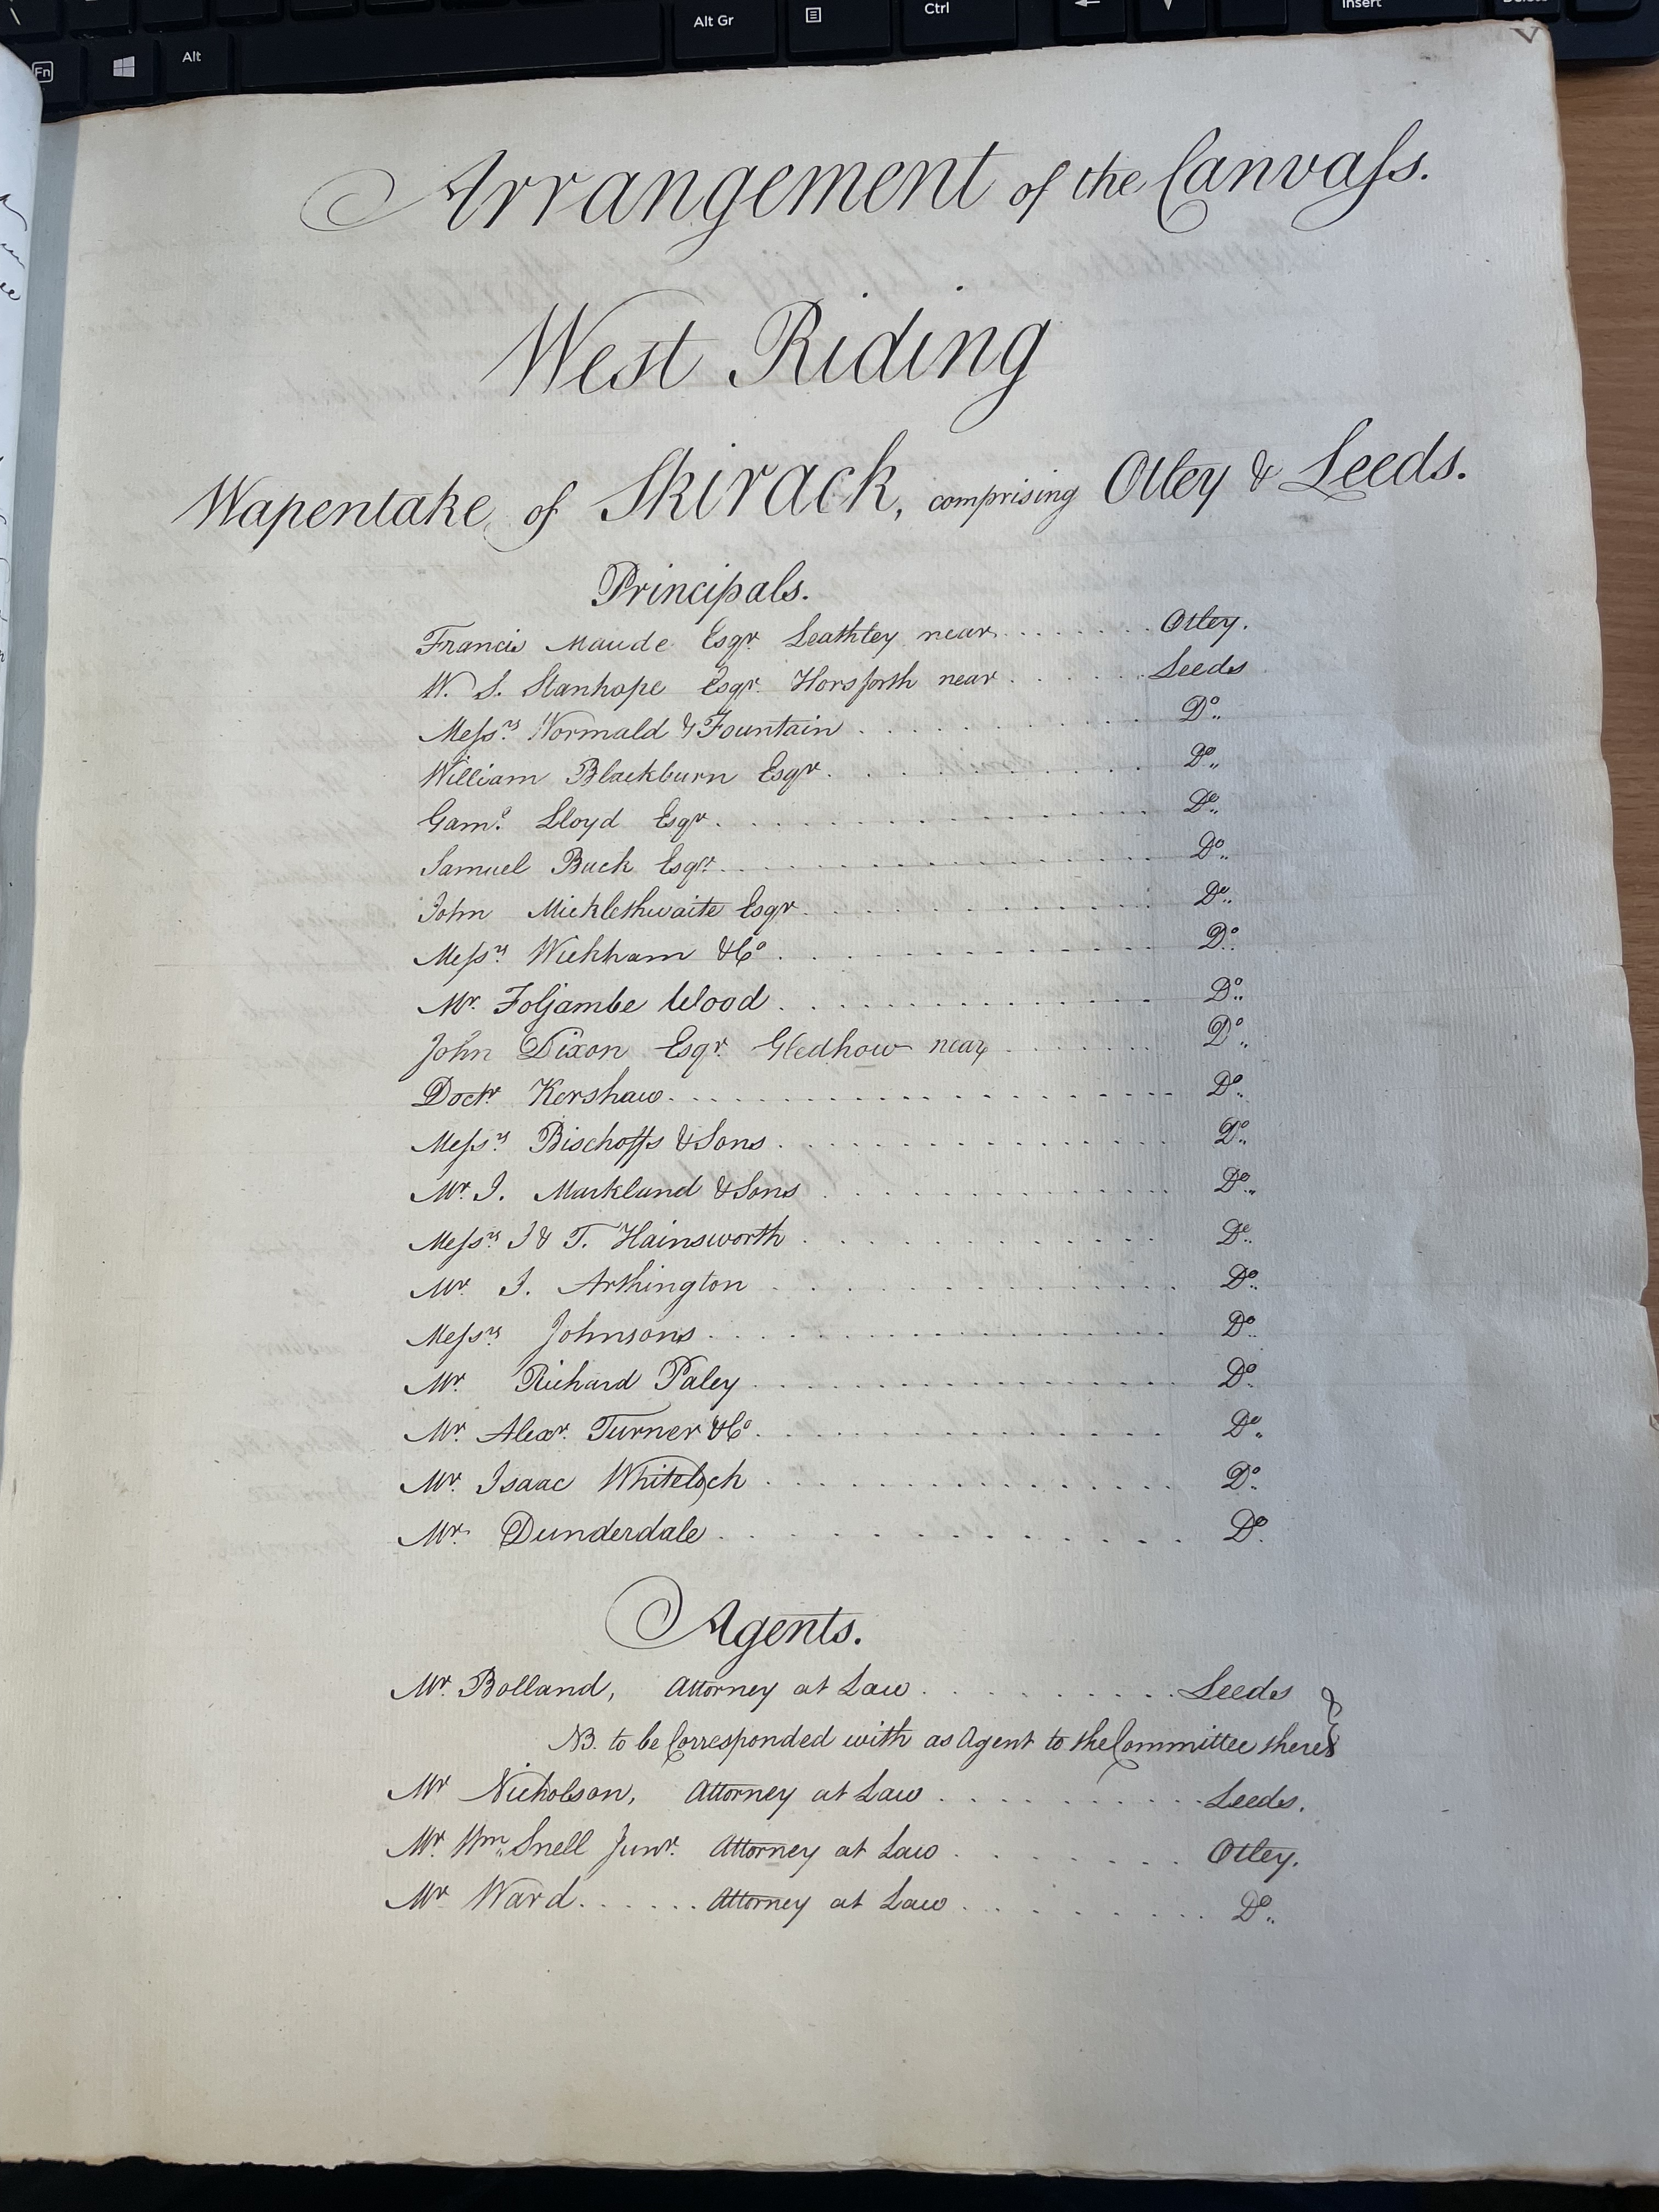 Alt Gr
Ctrl
Insert
Fn
Alt
Arrangement of the Canvaſs.
West Riding
Wapentake of Skirack, comprising Otley & Leeds.
Principals.
Francis Maude Esqr. Leathley near . . . . . . . Otley.
W. S. Stanhope Esqr. Horsforth near . . . . . Leeds
Meſsrs. Wormald & Fountain . . . . . . . Do.
William Blackburn Esqr. . . . . . . . . Do.
Gaml. Lloyd Esqr. . . . . . . . . . . . Do.
Samuel Buck Esqr. . . . . . . . . . . . Do.
John Micklethwaite Esqr. . . . . . . . . Do.
Meſsrs. Wickham & Co. . . . . . . . . . Do.
Mr. Foljambe Wood . . . . . . . . . . . Do.
John Dixon Esqr. Gledhow near . . . . . . Do.
Doctr. Kershaw . . . . . . . . . . . . . Do.
Meſsrs. Bischoffs & Sons . . . . . . . . . Do.
Mr. J. Markland & Sons . . . . . . . . . Do.
Meſsrs. J & T. Hainsworth . . . . . . . . Do.
Mr. J. Arthington . . . . . . . . . . . Do.
Meſsrs. Johnsons . . . . . . . . . . . . Do.
Mr. Richard Paley . . . . . . . . . . . Do.
Mr. Alexr. Turner & Co. . . . . . . . . . Do.
Mr. Isaac Whitelock . . . . . . . . . . Do.
Mr. Dunderdale . . . . . . . . . . . . Do.
Agents.
Mr. Bolland, Attorney at Law . . . . . . . . . Leeds
NB. to be Corresponded with as Agent to the Committee there
Mr Nicholson, Attorney at Law . . . . . . . . . Leeds.
Mr. Wm. Snell Junr. Attorney at Law . . . . . . . Otley.
Mr Ward . . . . . . Attorney at Law . . . . . . . . Do.